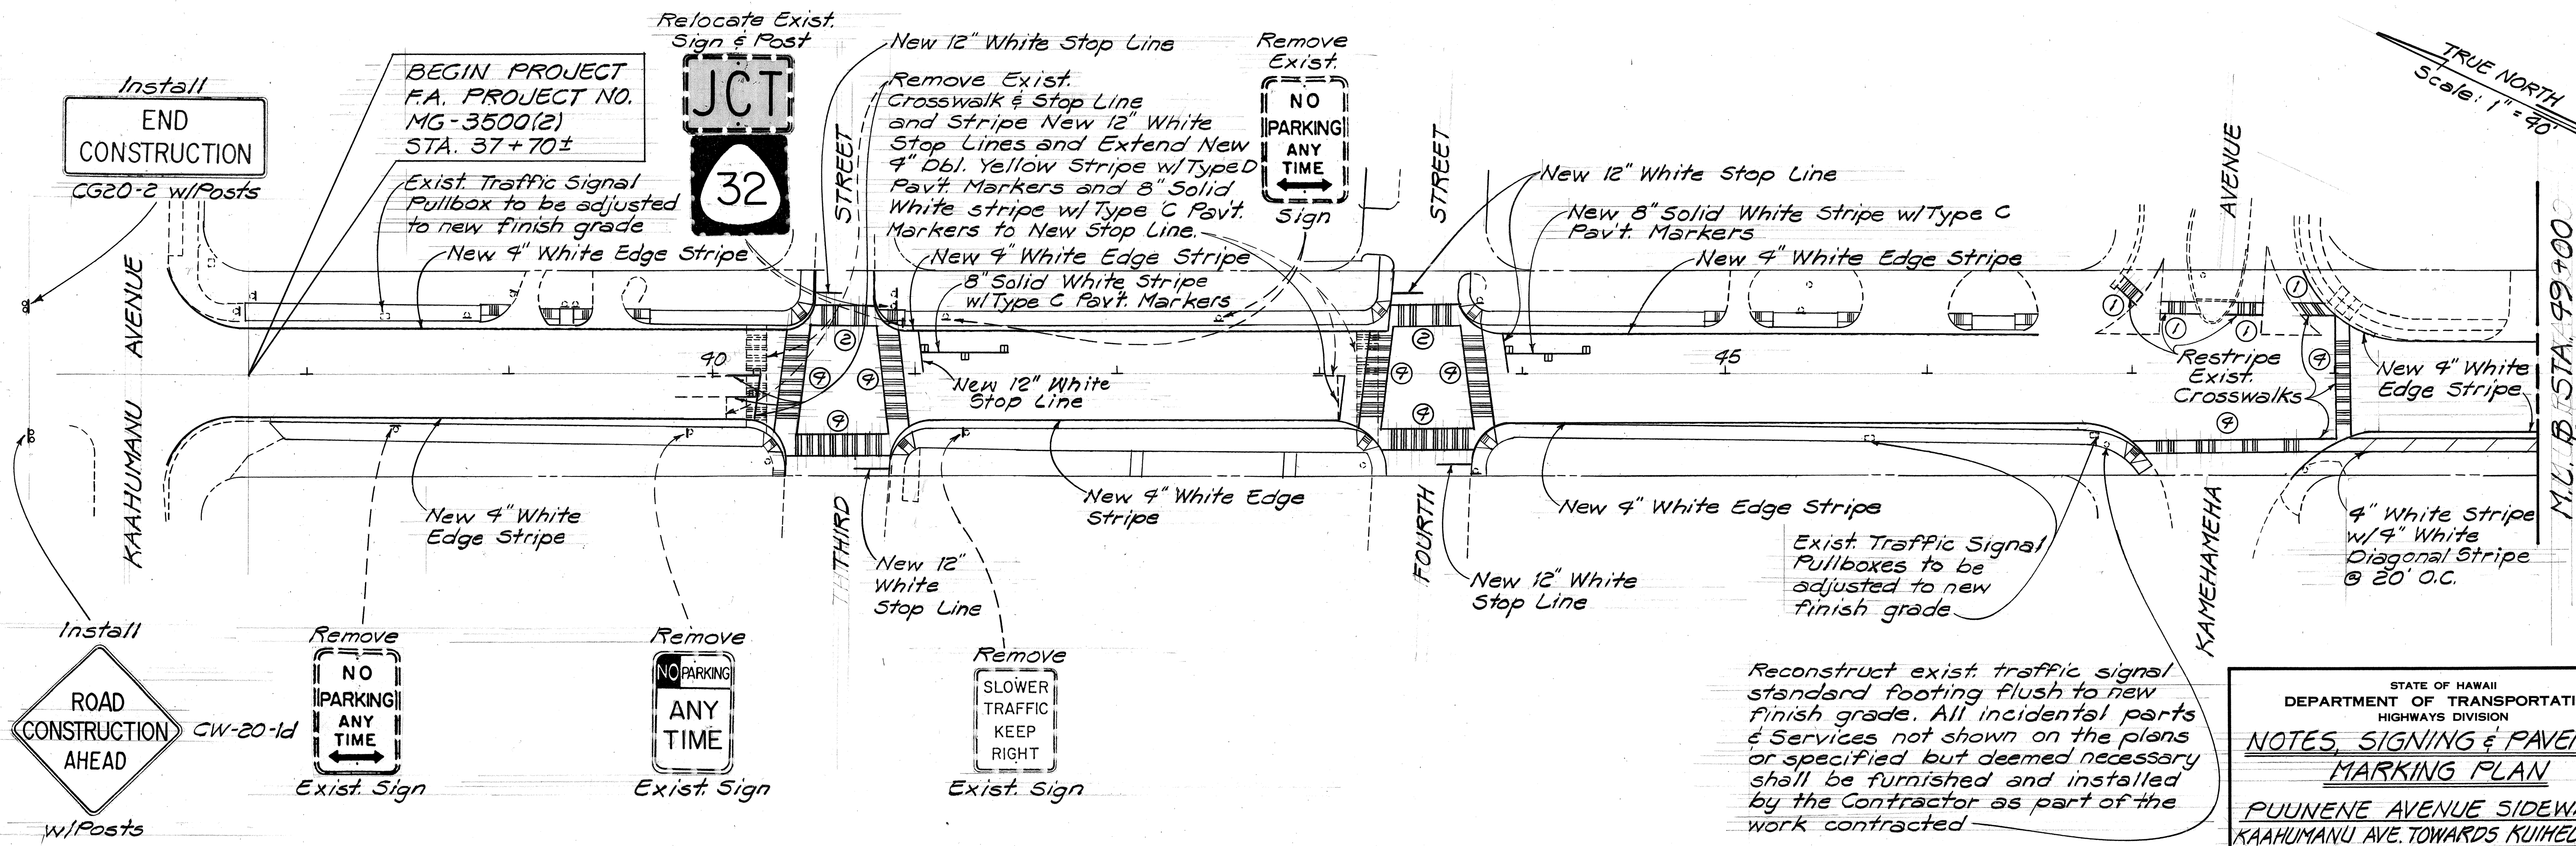 Install
END
CONSTRUCTION
CG20-2 w/Posts
BEGIN PROJECT
F.A. PROJECT NO.
MG-3500(2)
STA. 37+70±
Exist. Traffic Signal
Pullbox to be adjusted
to new finish grade
New 4" White Edge Stripe
Relocate Exist.
Sign & Post
JCT
32
New 12" White Stop Line
Remove Exist.
Crosswalk & Stop Line
and Stripe New 12" White
Stop Lines and Extend New
4" Dbl. Yellow Stripe w/Type D
Pav't. Markers and 8" Solid
White stripe w/Type C Pav't.
Markers to New Stop Line.
New 4" White Edge Stripe
8" Solid White Stripe
w/Type C Pav't. Markers
Remove
Exist.
NO
PARKING
ANY
TIME
Sign
New 12" White Stop Line
New 8" Solid White Stripe w/Type C
Pav't. Markers
New 4" White Edge Stripe
TRUE NORTH
Scale: 1" = 40'
KAAHUMANU AVENUE
THIRD STREET
FOURTH STREET
KAMEHAMEHA AVENUE
40
45
2
4
4
4
2
4
4
4
1
1
1
1
4
4
New 12" White
Stop Line
Restripe
Exist.
Crosswalks
New 4" White
Edge Stripe
New 4" White
Edge Stripe
New 12"
White
Stop Line
New 4" White Edge
Stripe
New 12" White
Stop Line
New 4" White Edge Stripe
Exist. Traffic Signal
Pullboxes to be
adjusted to new
finish grade
4" White Stripe
w/4" White
Diagonal Stripe
@ 20' O.C.
Install
ROAD
CONSTRUCTION
AHEAD
CW-20-1d
w/Posts
Remove
NO
PARKING
ANY
TIME
Exist. Sign
Remove
NO PARKING
ANY
TIME
Exist. Sign
Remove
SLOWER
TRAFFIC
KEEP
RIGHT
Exist. Sign
Reconstruct exist. traffic signal
standard footing flush to new
finish grade. All incidental parts
& Services not shown on the plans
or specified but deemed necessary
shall be furnished and installed
by the Contractor as part of the
work contracted
STATE OF HAWAII
DEPARTMENT OF TRANSPORTATI
HIGHWAYS DIVISION
NOTES, SIGNING &
MARKING PLAN
PUUNENE AVENUE
KAAHUMANU AVE. TOWARDS